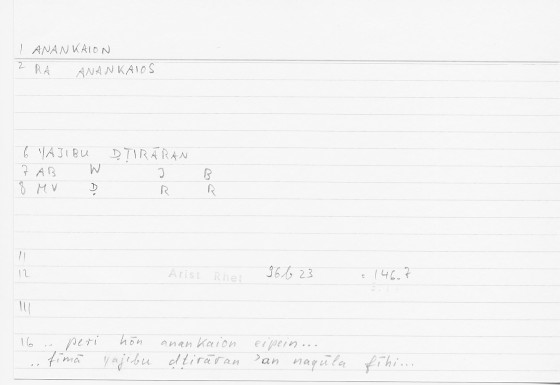 1 ANANKAION
2 RA ANANKAIOS
6 YAJIBU ḌṬIRĀRAN
7 AB W J B
8 MV Ḍ R R
11
12 Arist Rhet 36b23 = 146.7
111
16 .. peri hōn anankaion eipein...
.. fīmā yajibu ḍṭirāran ʾan naqūla fīhi...